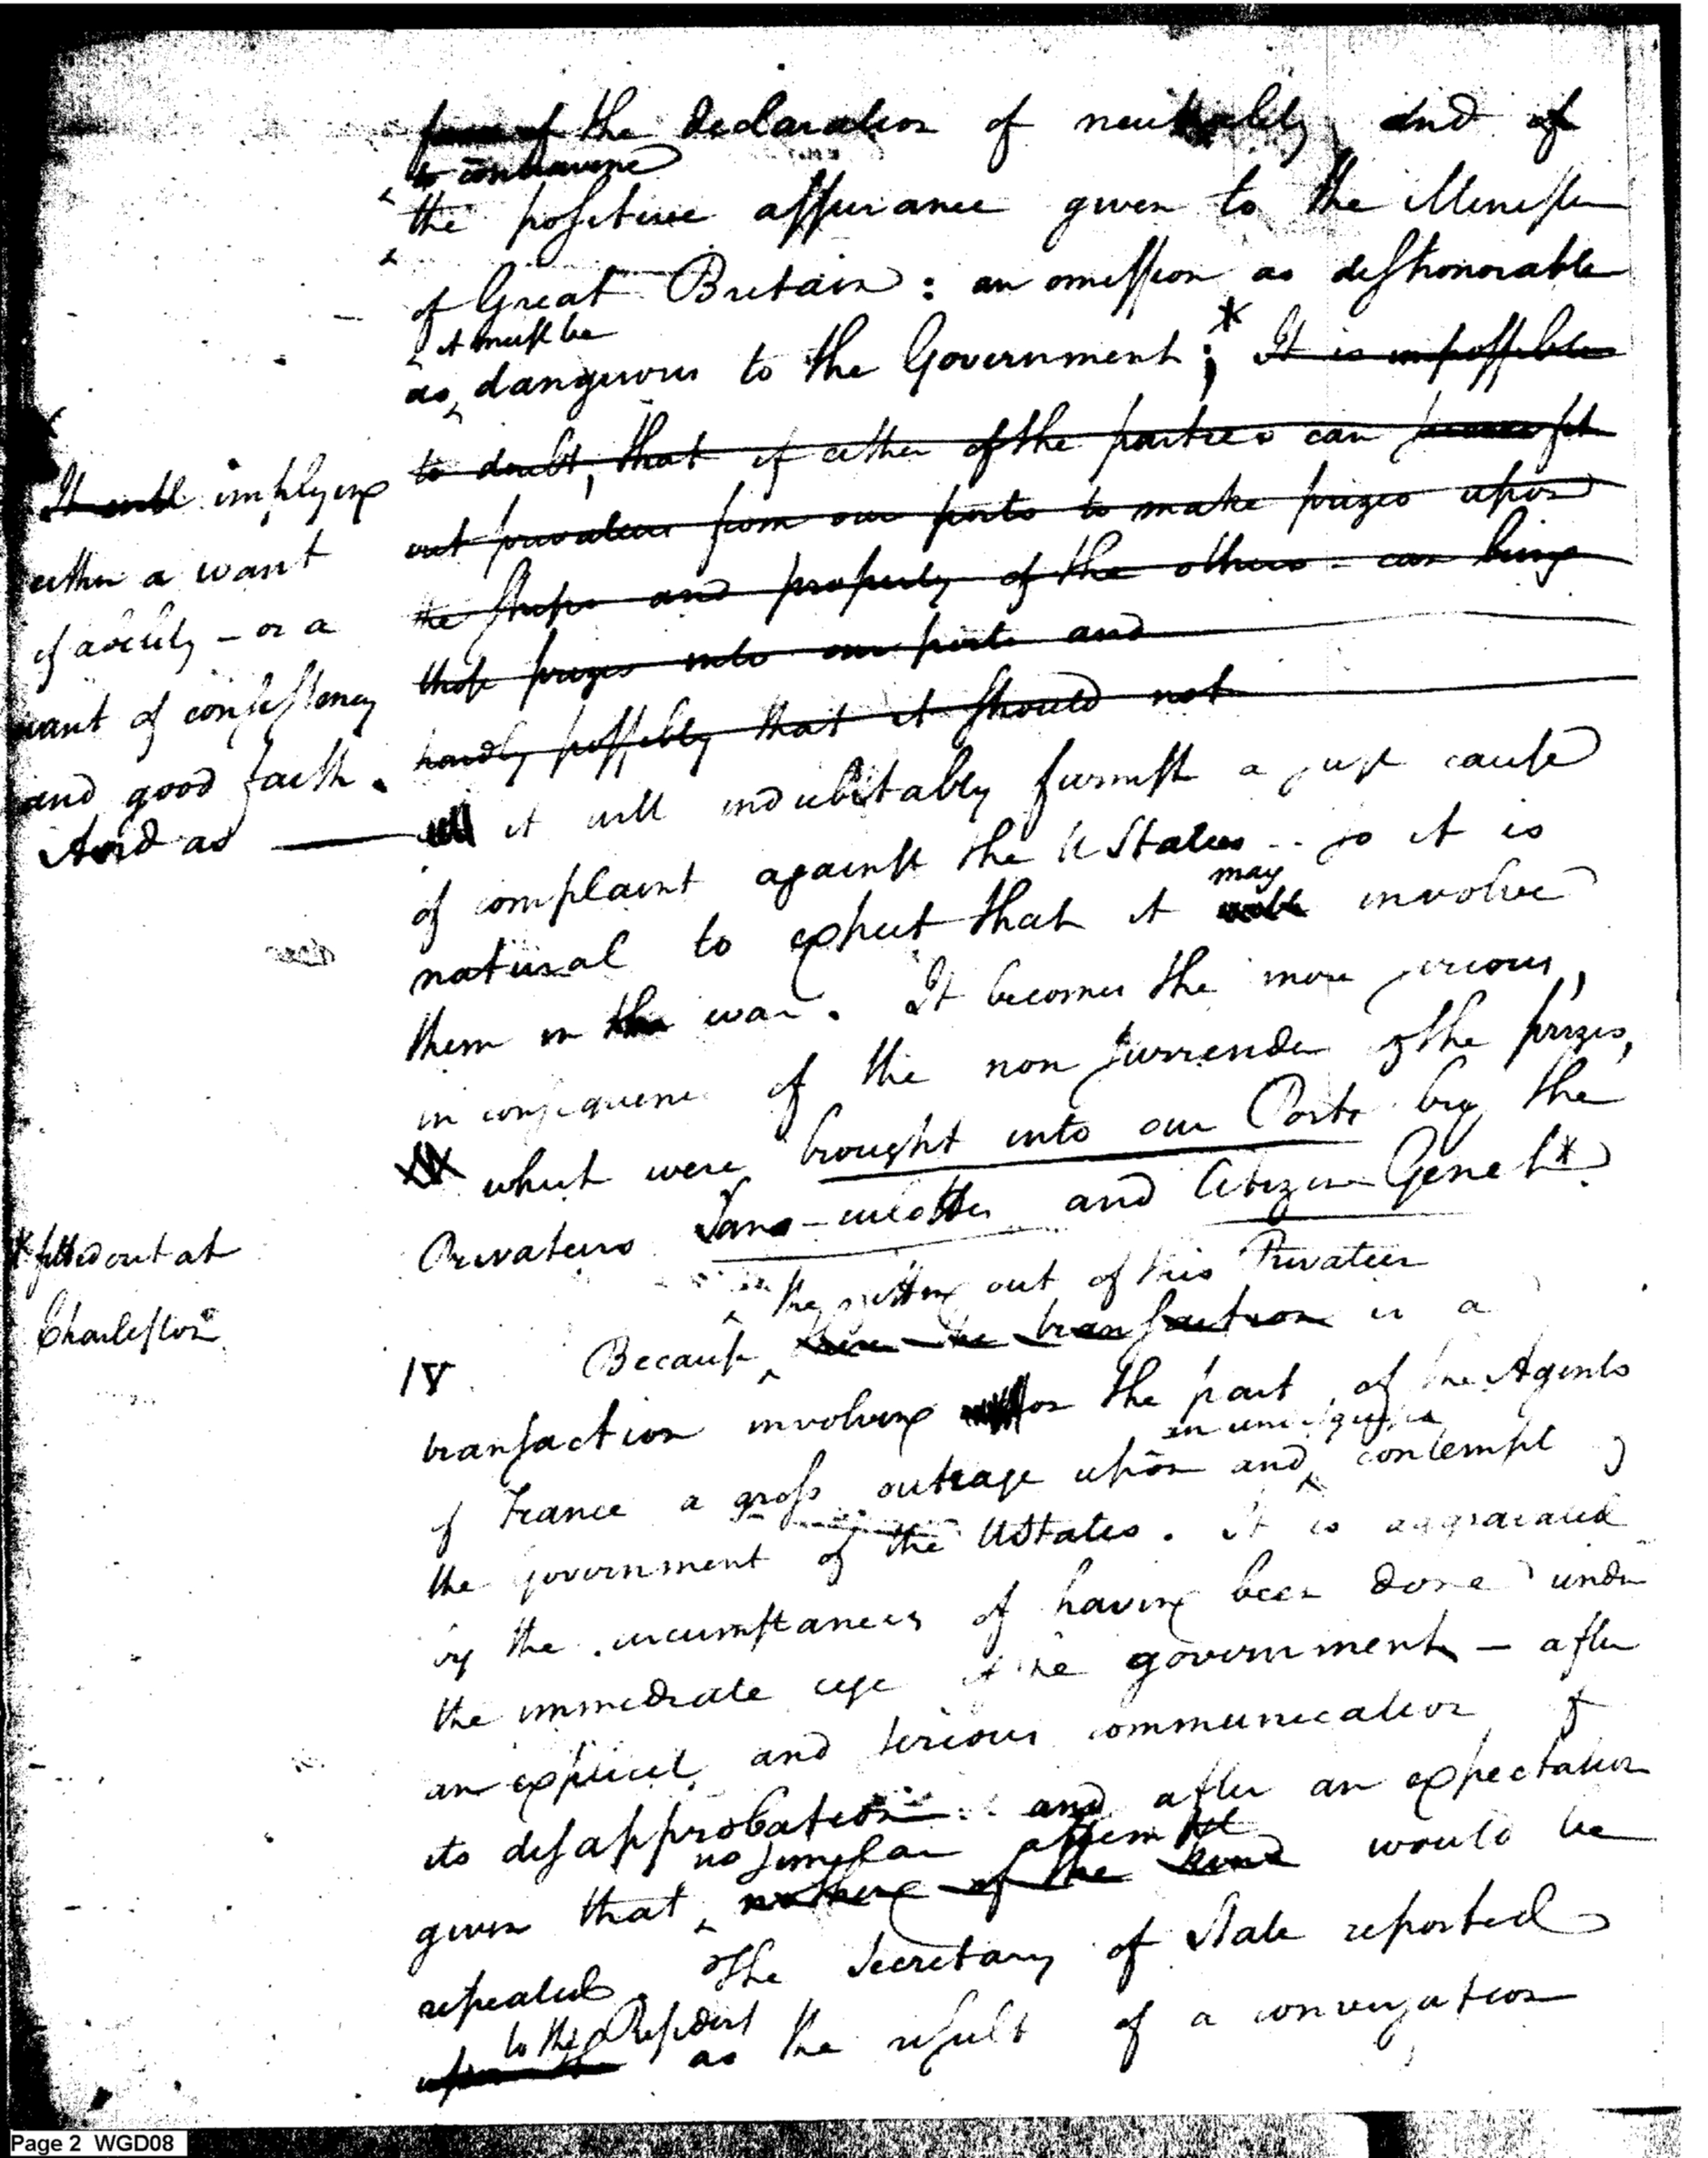 of the declaration of neutrality and of
to contravene
the positive assurance given to the Minister
of Great Britain: an omission as dishonorable
it must be
as dangerous to the Government; * It is impossible
to doubt, that if either of the parties can fit
out privateers from our ports to make prizes upon
the ships and property of the others - can bring
those prizes into our ports and
hardly possibly that it should not
It will implying
either a want
of ability - or a
want of consistency
and good faith.
And as
it will indubitably furnish a just cause
of complaint against the UStates - so it is
may
natural to expect that it involve
them in the war. It becomes the more serious,
in consequence of the non surrender of the prizes,
which were brought into our Ports by the
Privateers Sans-culottes and Citizen Genet *.
* fitted out at
Charleston
the fitting out of this Privateer
IV Because the transaction is a
transaction involving on the part of the Agents
an unequivocal
of France a gross outrage upon and contempt of
the government of the UStates. It is aggravated
by the circumstances of having been done under
the immediate eye of the government - after
an explicit and serious communication of
its disapprobation and after an expectation
no similar attempt
given that nothing of the kind would be
repeated. The Secretary of State reported
to the President
as the result of a conversation
Page 2 WGD08